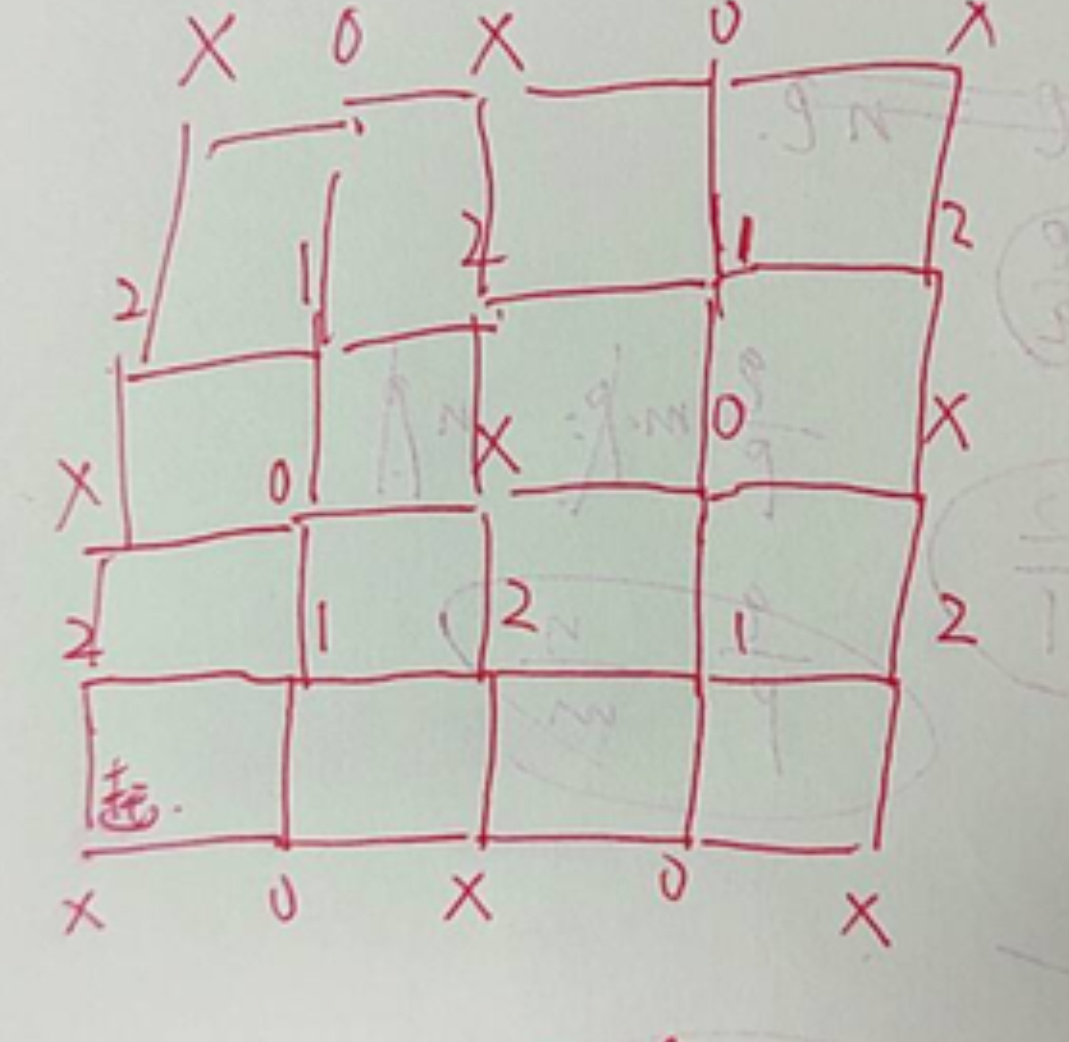 X 0 X 0 X
2 1 2 1 2
X 0 X 0 X
2 1 2 1 2
起.
X 0 X 0 X